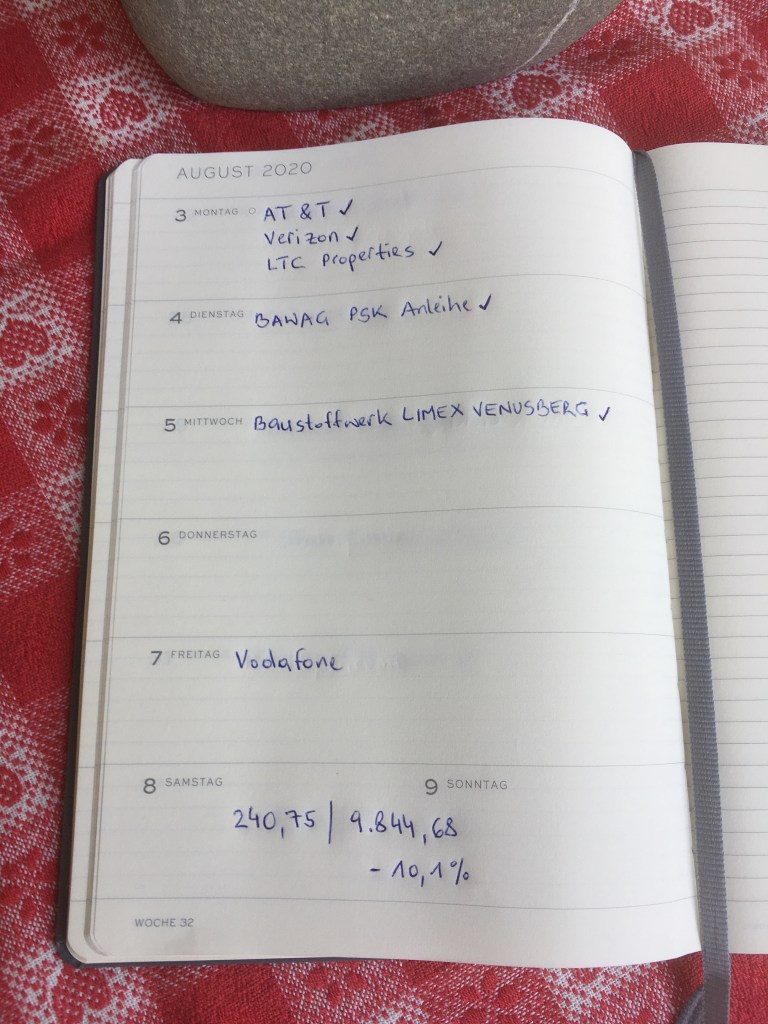 AUGUST 2020
3 MONTAG AT & T ✓
Verizon ✓
LTC Properties ✓
4 DIENSTAG BAWAG PSK Anleihe ✓
5 MITTWOCH Baustoffwerk LIMEX VENUSBERG ✓
6 DONNERSTAG
7 FREITAG Vodafone
8 SAMSTAG 9 SONNTAG
240,75 | 9.844,68
- 10,1%
WOCHE 32